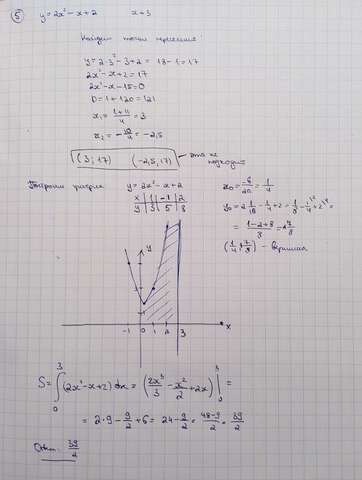 ⑤ y = 2x² - x + 2      x = 3
Найдём точки пересечения:
y = 2·3² - 3 + 2 = 18 - 1 = 17
2x² - x + 2 = 17
2x² - x - 15 = 0
D = 1 + 120 = 121
x₁ = (1+11)/4 = 3
x₂ = -10/4 = -2,5
(3; 17)   (-2,5; 17) это не подходит
Построим график   y = 2x² - x + 2
x | 1 | -1 | 2
y | 3 | 5 | 8
= (1-2+8)/8 =
- вершина
y
-1 0 1 2 3 x
S = ∫₀³ (2x² - x + 2) dx = (2x³/3 - x²/2 + 2x) |₀³ =
= 2·9 - 9/2 + 6 = 24 - 9/2 = (48-9)/2 = 39/2
Ответ: 39/2